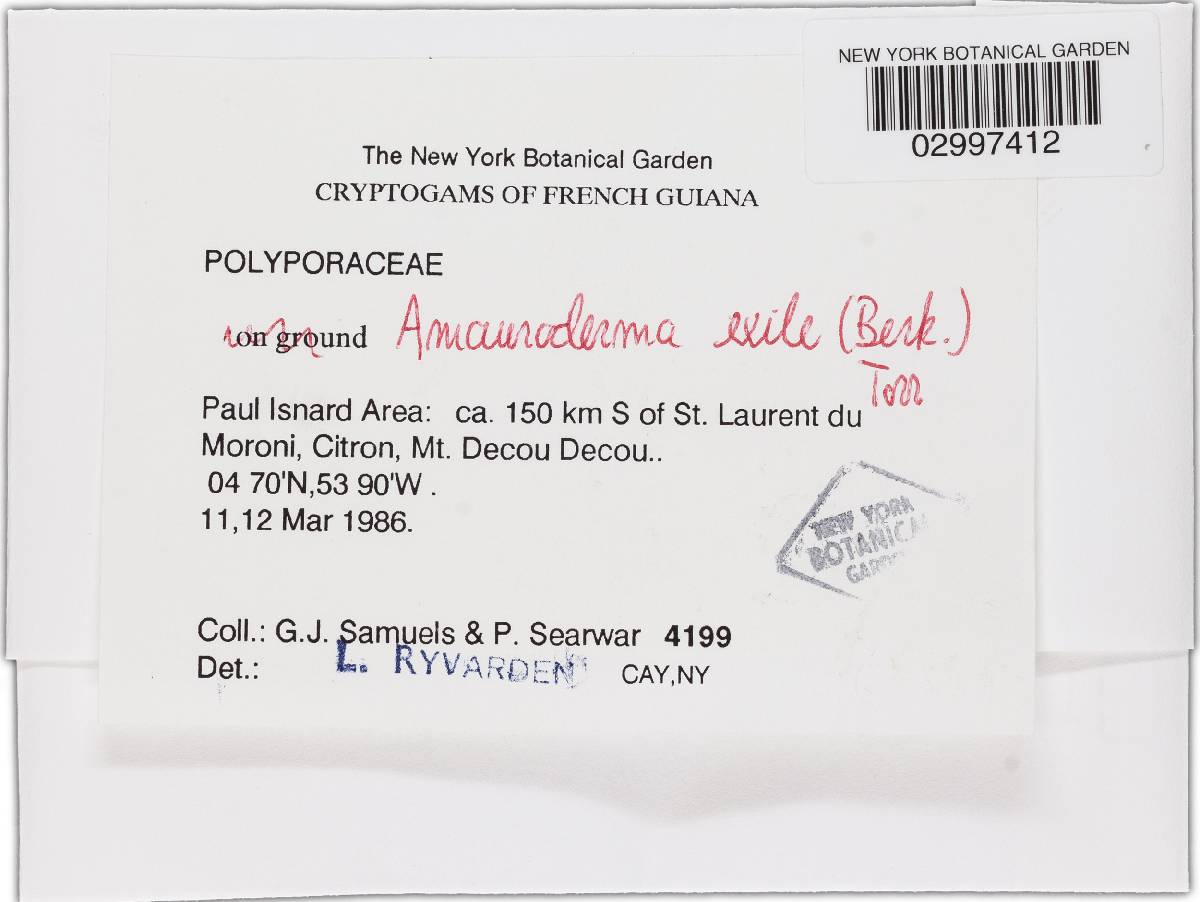 NEW YORK BOTANICAL GARDEN
02997412
The New York Botanical Garden
CRYPTOGAMS OF FRENCH GUIANA
POLYPORACEAE
on ground Amauroderma exile (Berk.)
Torr
Paul Isnard Area: ca. 150 km S of St. Laurent du
Moroni, Citron, Mt. Decou Decou..
04 70'N,53 90'W .
11,12 Mar 1986.
NEW YORK
BOTANICAL
GARDEN
Coll.: G.J. Samuels & P. Searwar 4199
Det.: L. RYVARDEN CAY,NY